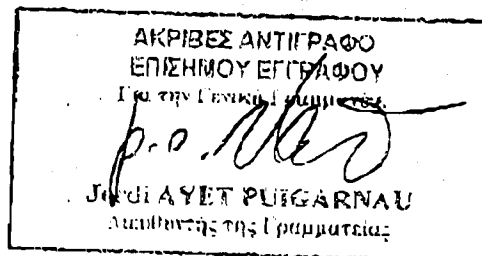 ΑΚΡΙΒΕΣ ΑΝΤΙΓΡΑΦΟ
ΕΠΙΣΗΜΟΥ ΕΓΓΡΑΦΟΥ
Για την Γενική Γραμματέα
p.o.
Jordi AYET PUIGARNAU
Διευθυντής της Γραμματείας